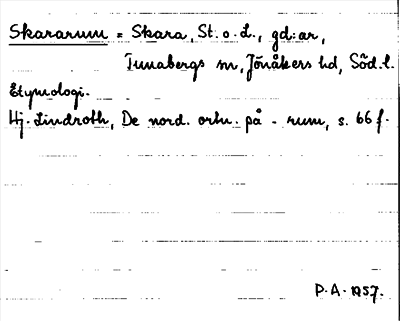 Skararum = Skara, St. o. L., gd:ar,
Tunabergs sn, Jönåkers hd, Söd.l.
Etymologi.
Hj. Lindroth, De nord. ortn. på - rum, s. 66 f.
P.A. 1957.